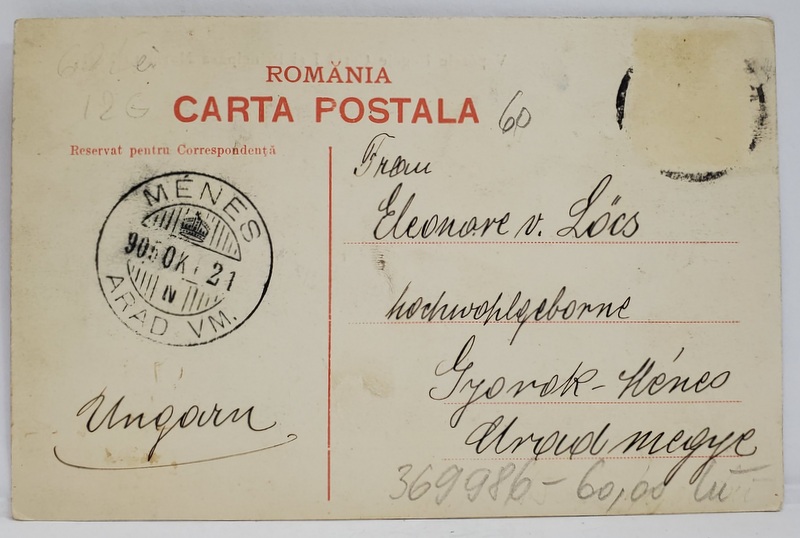 ROMĂNIA
CARTA POSTALA
60
Reservat pentru Correspondență
MÉNES
905 OKT 21
N
ARAD VM.
Frau
Eleonore v. Lőcs
hochwohlgeborne
Gyorok-Ménes
Arad megye
Ungarn
369986 - 60,00